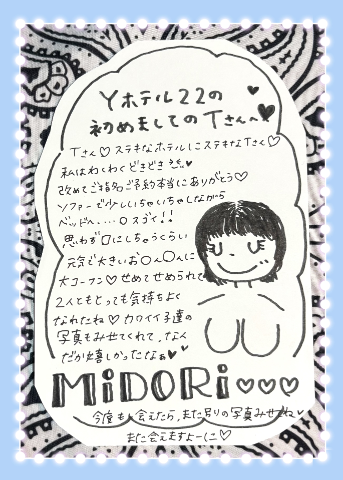 Yホテル22の
初めましてのTさんへ♥
Tさん♡ステキなホテルにステキなTさん♡
私はわくわくどきどき
改めてご指名ご予約本当にありがとう♡
ソファーで少しいちゃいちゃしながら
ベッドへ....○スゴく!!
思わず口にしちゃうくらい
元気で大きいお○ん○んに
大コーフン♡せめてせめられて
2人ともとっても気持ちよく
なれたね♡カワイイ子達の
写真もみせてくれて、なん
だか嬉しかったなぁ♥♥
MiDORi♡♡♡
今度も会えたら、また の写真みせてね♥
また会えますよーに♡